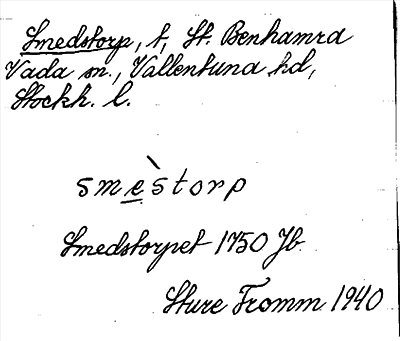 Smedstorp, t, St. Benhamra
Vada sn., Vallentuna hd,
Stockh. l.
smèstorp
Smedstorpet 1750 Jb.
Sture Fromm 1940